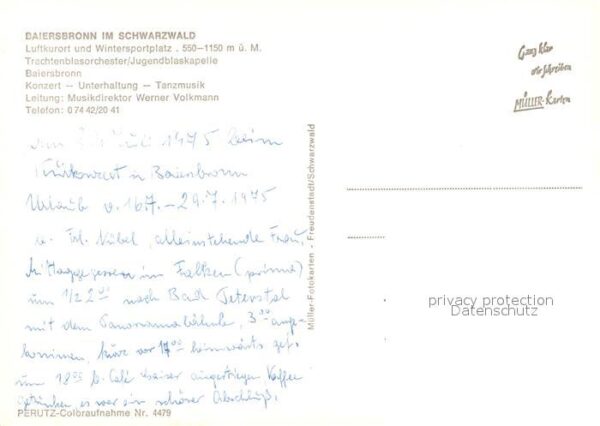 BAIERSBRONN IM SCHWARZWALD
Luftkurort und Wintersportplatz . 550—1150 m ü. M.
Trachtenblasorchester/Jugendblaskapelle
Baiersbronn
Konzert — Unterhaltung — Tanzmusik
Leitung: Musikdirektor Werner Volkmann
Telefon: 0 74 42/20 41
Juli 1975 beim
Kurkonzert in Baiersbronn
Urlaub v. 16.7. – 29.7.1975
u. Frl. Nübel, alleinstehende Frau,
im Falken (prima)
um 1/2 2°° nach Bad Peterstal
mit dem Panoramabähnle, 3°° ange-
kommen, kurz vor 17°° heimwärts gef.
um 18°° b. Café Kaiser ausgestiegen Kaffee
getrunken es war ein schöner Abschluß.
PERUTZ-Coloraufnahme Nr. 4479
Müller-Fotokarten - Freudenstadt/Schwarzwald
Ganz klar
wir schreiben
MÜLLER-Karten
privacy protection
Datenschutz